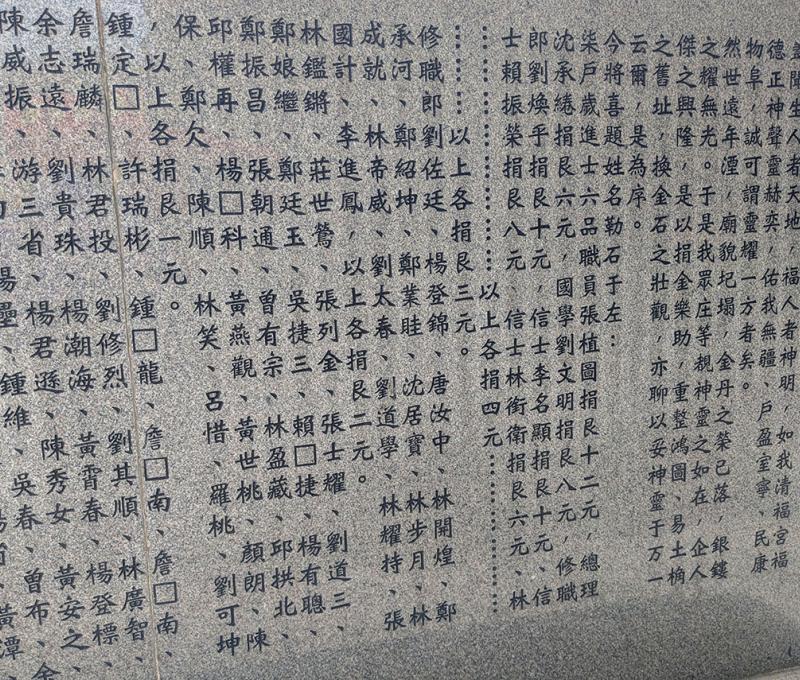 蓋聞生人者天地,福人者神明,如我清福宮福
德正神聲靈赫奕,佑我無疆、戶盈室寧、民康
物阜,誠可謂靈耀一方者矣。
然世遠年湮,廟貌圮塌,金丹之榮已落,銀鏤
之耀無光。于是我眾庄等覩神靈之如在,企人
傑之興隆,是以捐金樂助,重整鴻圖、易土桷
之舊址,換金石之壯觀,亦聊以妥神靈于万一
云爾,是為序。
今將喜題姓名勒石于左:
柒戶歲進士六品職員張植圖捐艮十二元,總理
沈承綣捐艮六元,國學劉文明捐艮八元,修職
郎劉煥乎捐艮十元,信士李名顯捐艮十元、信
士賴振榮捐艮八元、信士林衡衛捐艮六元、林
……………以上各捐四元……………
……以上各捐艮三元。
修職郎劉佐廷、楊登錦、唐汝中、林開煌、鄭
承河、鄭紹坤、鄭業眭、沈居寶、林步月、林
成就、林帝威、劉太春、劉道學、林耀持、張
國計、李進鳳,以上各捐艮二元。
林鑑鏘、莊世鶯、張列金、張士耀、劉道三、
鄭娘繼、鄭廷玉、吳捷三、賴□捷、楊有聰、
鄭振昌、張朝通、曾有宗、林盈藏、邱拱北、
邱權再、楊□科、黃燕觀、黃世桃、顏朗、陳
保、鄭欠、陳順、林笑、呂惜、羅桃、劉可坤
,以上各捐艮一元。
鍾定□、許瑞彬、鍾□龍、詹□南、詹□南、
詹瑞麟、林君投、劉修烈、劉其順、林廣智、
余志遠、劉貴珠、楊潮海、黃霄春、楊登標、
陳威振、游三省、楊君遜、陳秀女、黃安之、
楊壘、鍾維、吳春、曾布、余
黃潭、